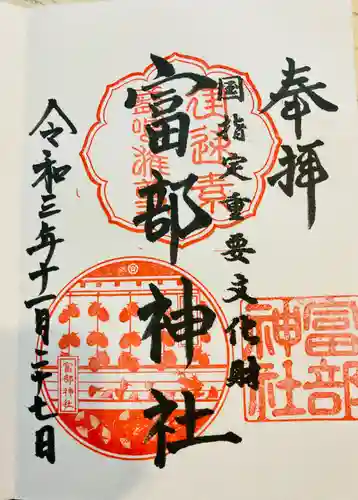 奉拝
国指定重要文化財
富部神社
令和三年十一月二十七日
富部
神社
富部神社